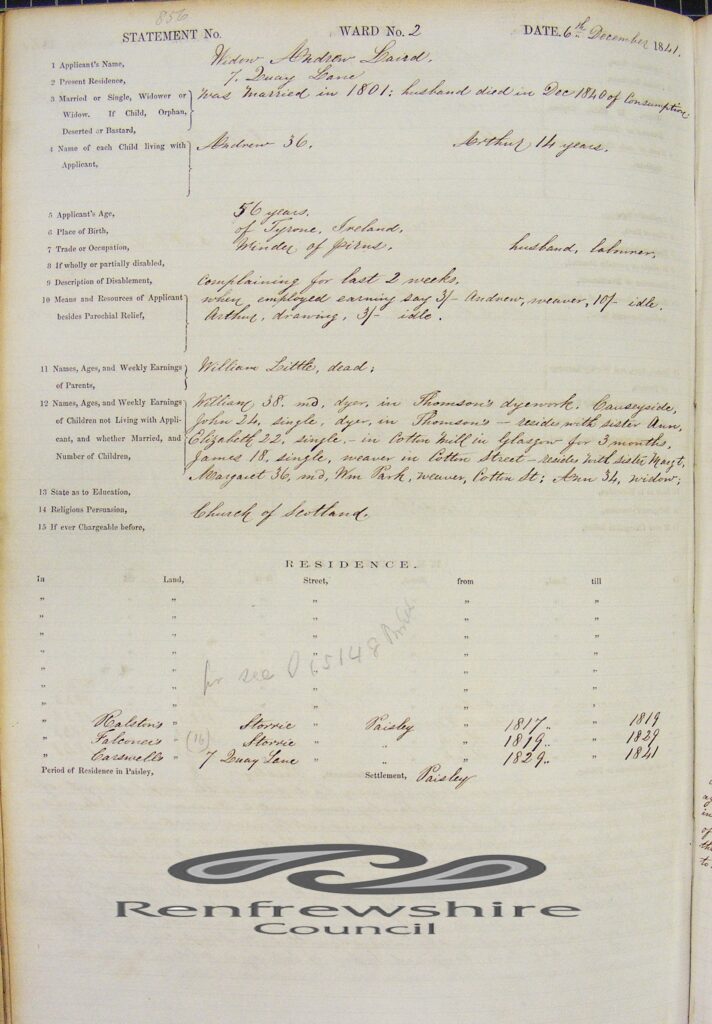 856
STATEMENT No. WARD No. 2 DATE. 6th December 1841.
1 Applicant's Name, Widow Andrew Laird.
2 Present Residence, 7. Quay Lane
3 Married or Single, Widower or Widow. If Child, Orphan, Deserted or Bastard, was married in 1801: husband died in Dec 1840 of Consumption
4 Name of each Child living with Applicant, Andrew 36. Arthur 14 years.
5 Applicant's Age, 56 years.
6 Place of Birth, of Tyrone, Ireland.
7 Trade or Occupation, Winder of pirns. husband, labourer.
8 If wholly or partially disabled,
9 Description of Disablement, Complaining for last 2 weeks.
10 Means and Resources of Applicant besides Parochial Relief, when employed earning say 3/- Andrew, weaver, 10/- idle.
Arthur, drawing, 3/- idle.
11 Names, Ages, and Weekly Earnings of Parents, William Little, dead;
12 Names, Ages, and Weekly Earnings of Children not Living with Applicant, and whether Married, and Number of Children, William 38. md, dyer, in Thomson's dyework. Causeyside,
John 24, single, dyer, in Thomson's - resides with sister Ann,
Elizabeth 22, single - in Cotton Mill in Glasgow for 3 months,
James 18, single, weaver in Cotton Street - resides with sister Margt.
Margaret 36, md, Wm Park, weaver, Cotton St; Ann 34, widow;
13 State as to Education,
14 Religious Persuasion, Church of Scotland.
15 If ever Chargeable before,
RESIDENCE.
In Land, Street, from till
" " " " "
" " " " "
" " " " "
" " " " "
" " " " "
" " " " "
for see
" Ralston's " Storrie " Paisley " 1817.. " 1819
" Falconer's " (16) Storrie " " " 1819.. " 1829
" Carswell's " 7 Quay Lane " " " 1829.. " 1841
Period of Residence in Paisley, Settlement, Paisley
Renfrewshire
Council